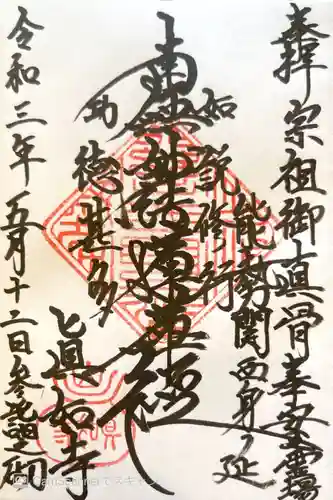 奉拝宗祖御真骨奉安霊場
能勢関西身延
如説修行
南無妙法蓮華経
功徳甚多
真如寺
令和三年五月十二日参詣之砌